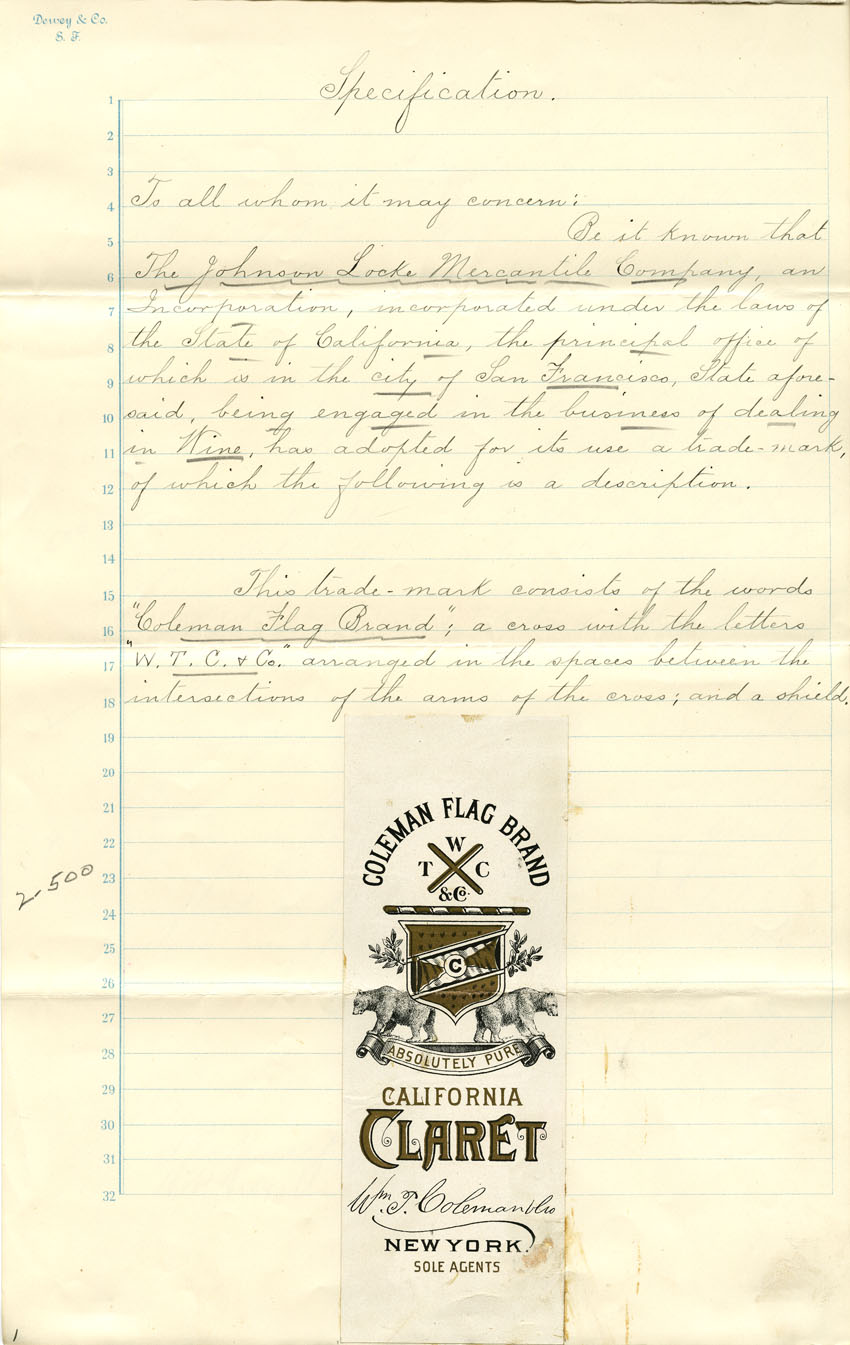 Dewey & Co.
S. F.
Specification.
1
2
3
To all whom it may concern:
4
Be it known that
5
The Johnson Locke Mercantile Company, an
6
Incorporation, incorporated under the laws of
7
the State of California, the principal office of
8
which is in the city of San Francisco, State afore-
9
said, being engaged in the business of dealing
10
in Wine, has adopted for its use a trade-mark,
11
of which the following is a description.
12
13
14
This trade-mark consists of the words
15
"Coleman Flag Brand"; a cross with the letters
16
"W. T. C. & Co." arranged in the spaces between the
17
intersections of the arms of the cross; and a shield.
18
19
20
21
22
23
24
25
26
27
28
29
30
31
32
2-500
COLEMAN FLAG BRAND
W
T C
& Co.
C
ABSOLUTELY PURE
CALIFORNIA
CLARET
Wm. T. Coleman & Co
NEW YORK.
SOLE AGENTS
1